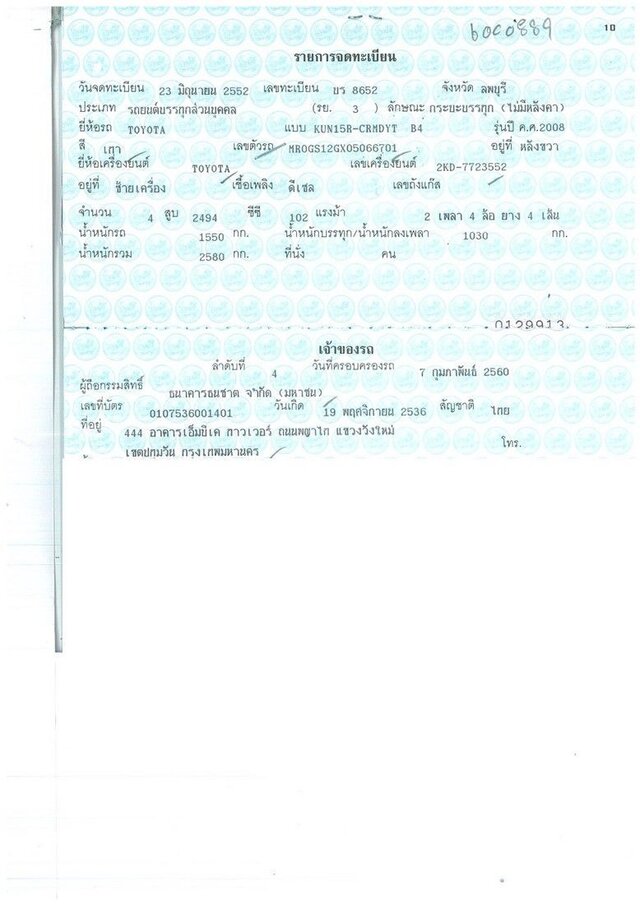 6000889
10
รายการจดทะเบียน
วันจดทะเบียน 23 มิถุนายน 2552 เลขทะเบียน บร 8652 จังหวัด ลพบุรี
ประเภท รถยนต์บรรทุกส่วนบุคคล (รย. 3 ) ลักษณะ กระบะบรรทุก (ไม่มีหลังคา)
ยี่ห้อรถ TOYOTA แบบ KUN15R-CRMDYT B4 รุ่นปี ค.ศ.2008
สี เทา เลขตัวรถ MR0GS12GX05066701 อยู่ที่ หลังขวา
ยี่ห้อเครื่องยนต์ TOYOTA เลขเครื่องยนต์ 2KD-7723552
อยู่ที่ ซ้ายเครื่อง เชื้อเพลิง ดีเซล เลขถังแก๊ส
จำนวน 4 สูบ 2494 ซีซี 102 แรงม้า 2 เพลา 4 ล้อ ยาง 4 เส้น
น้ำหนักรถ 1550 กก. น้ำหนักบรรทุก/น้ำหนักลงเพลา 1030 กก.
น้ำหนักรวม 2580 กก. ที่นั่ง คน
0129913
เจ้าของรถ
ลำดับที่ 4 วันที่ครอบครองรถ 7 กุมภาพันธ์ 2560
ผู้ถือกรรมสิทธิ์ ธนาคารธนชาต จำกัด (มหาชน)
เลขที่บัตร 0107536001401 วันเกิด 19 พฤศจิกายน 2536 สัญชาติ ไทย
ที่อยู่ 444 อาคารเอ็มบีเค ทาวเวอร์ ถนนพญาไท แขวงวังใหม่
เขตปทุมวัน กรุงเทพมหานคร โทร.